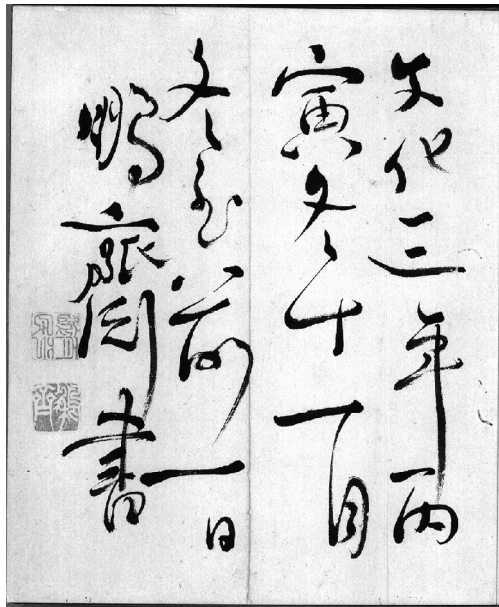 文化三年丙
寅冬十一月
冬至前一日
鵬齋書